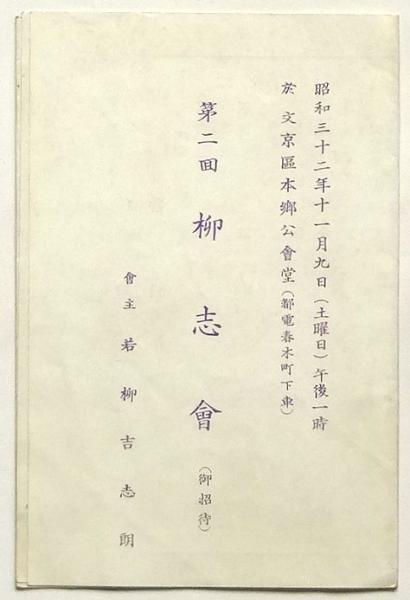 昭和三十二年十一月九日(土曜日)午後一時
於 文京區本鄉公會堂(都電春木町下車)
第二囬 柳志會(御招待)
會主 若柳吉志朗